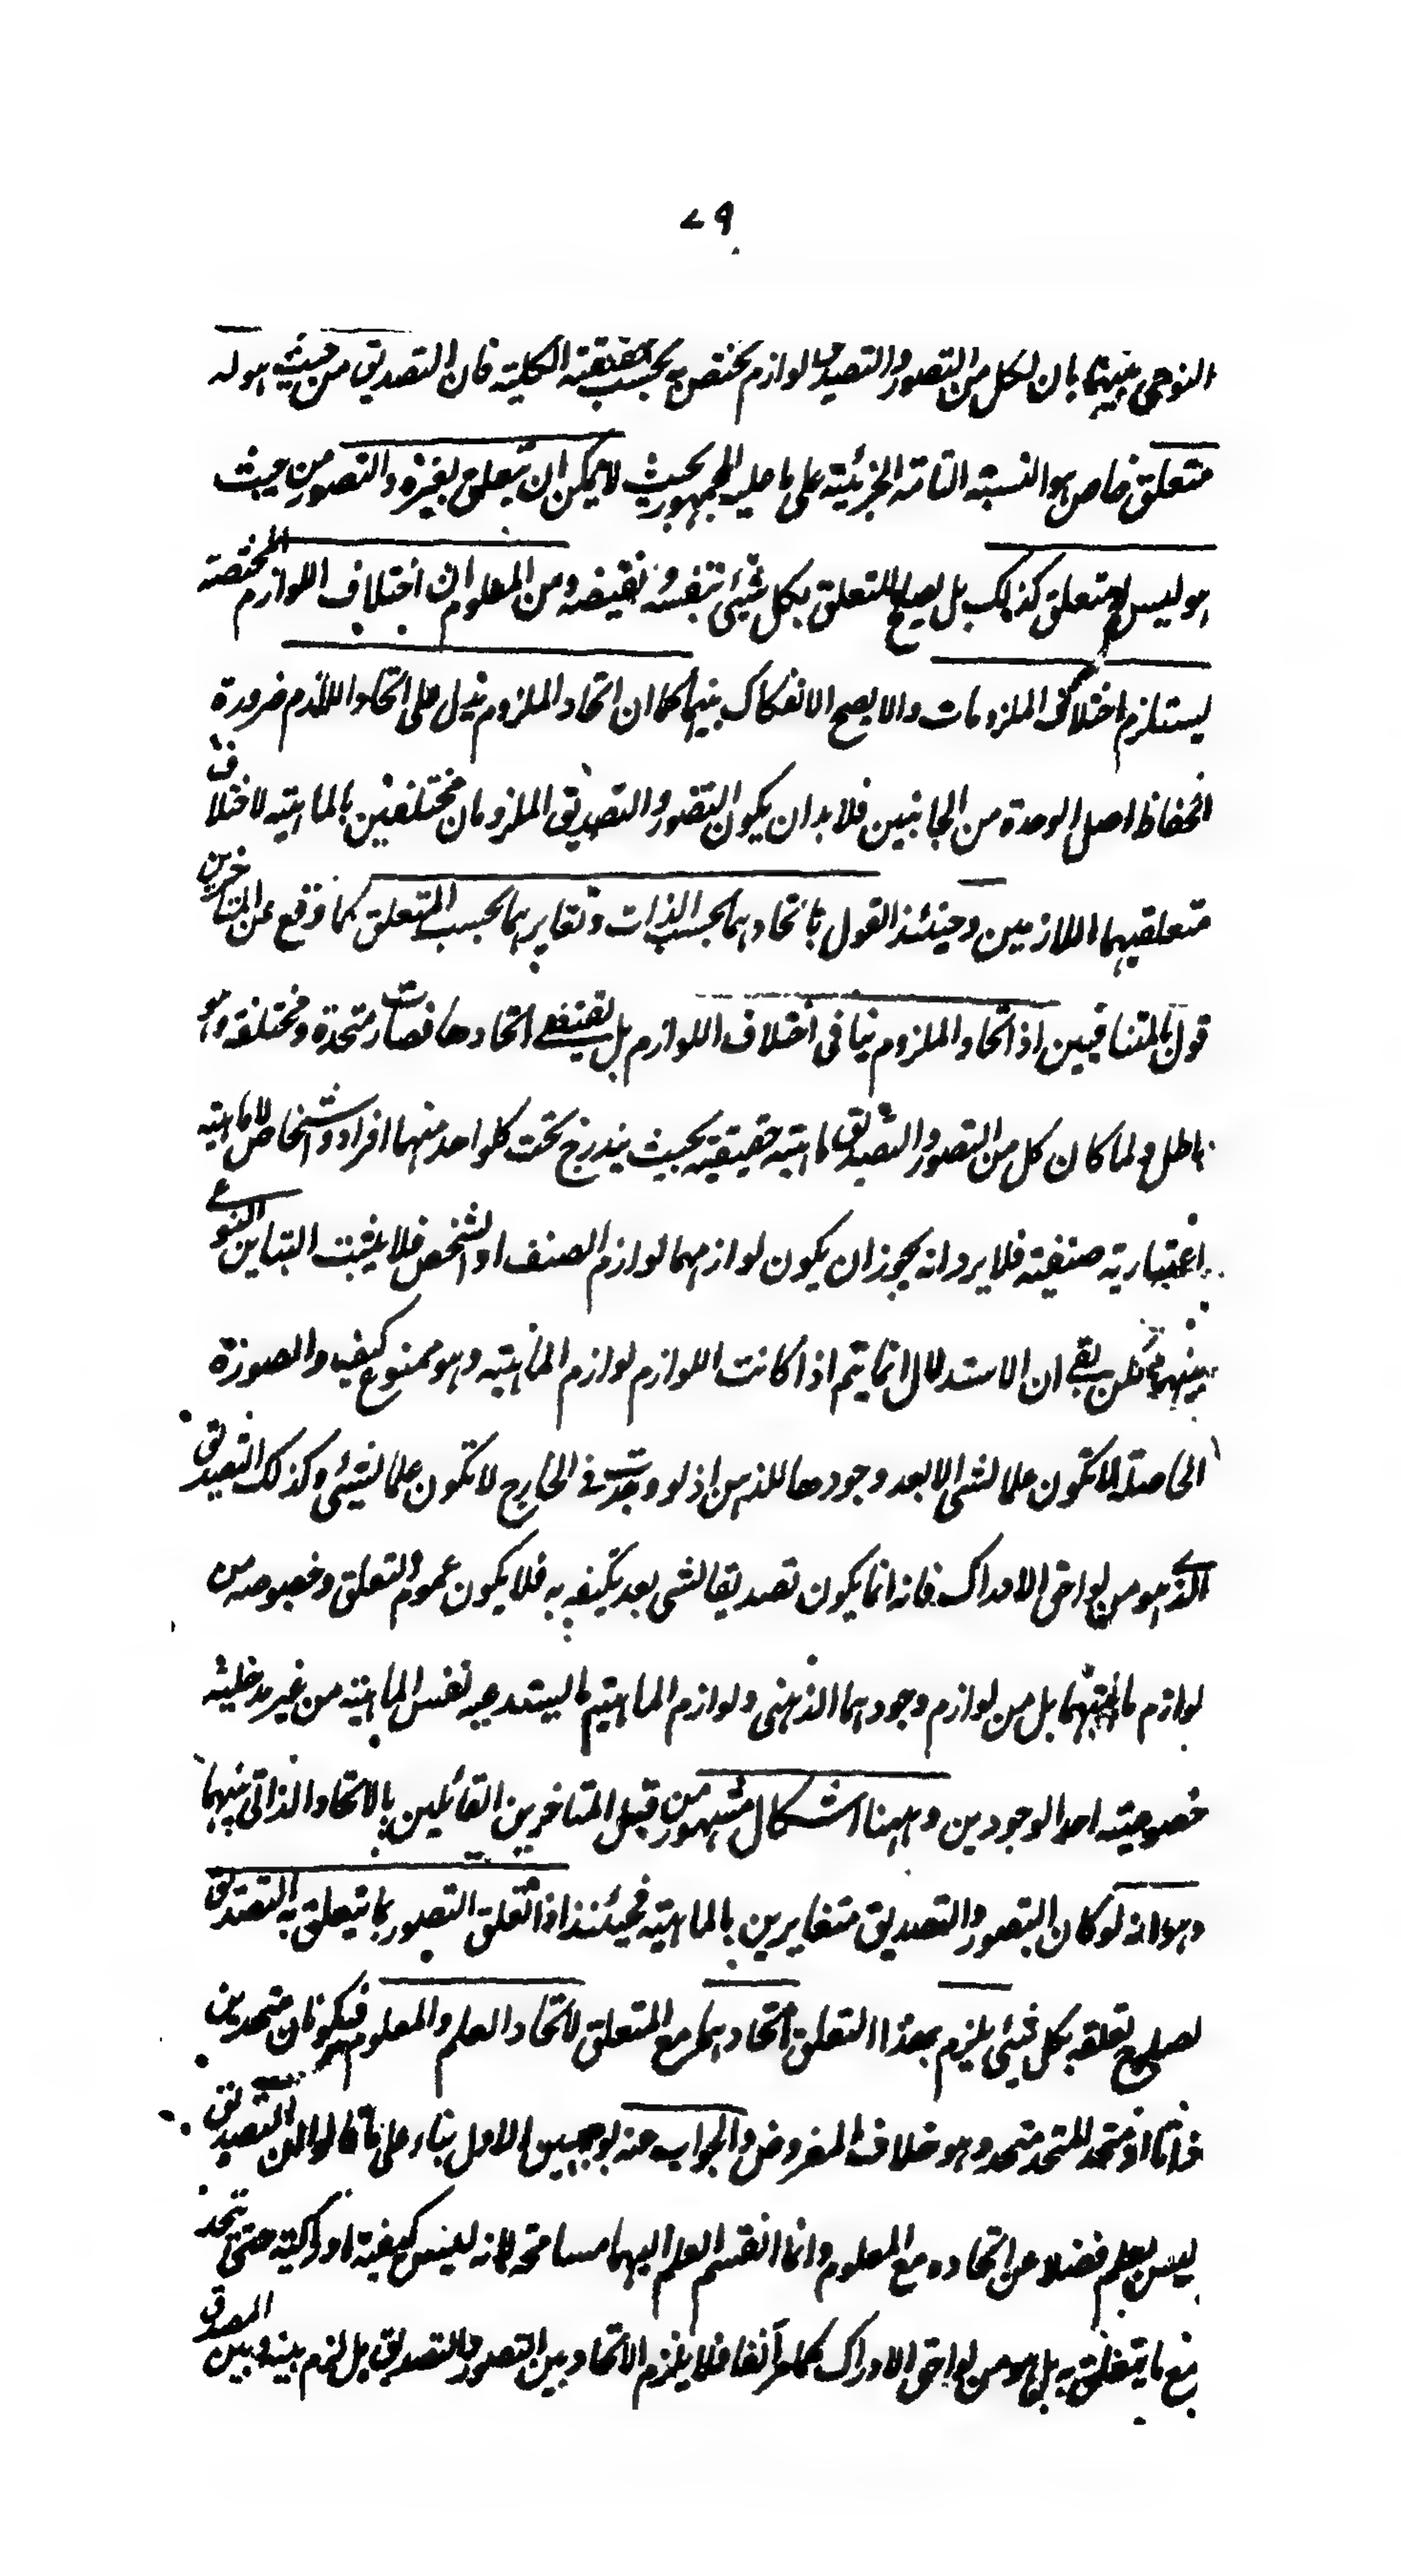 ٧٩
النوعى بينهما بان لكل من التصور والتصديق لوازم يختص به بحسب حقيقته الكلية فان التصديق من حيث هو له
متعلق خاص هو النسبة التامة الخبرية على ما عليه الجمهور بحيث لا يمكن ان يتعلق بغيره والتصور من حيث
هو ليس له متعلق كذلك بل يصلح للتعلق بكل شيئ بنفسه ونقيضه ومن المعلوم ان اختلاف اللوازم المختصة
يستلزم اختلاف الملزومات والا يصح الانفكاك بينهما كما ان اتحاد الملزوم يدل على اتحاد اللازم ضرورة
انحفاظ اصل الوحدة من الجانبين فلا بد ان يكون التصور والتصديق الملزومان مختلفين بالماهية لاختلاف
متعلقيهما اللازمين وحينئذ القول باتحادهما بحسب الذات وتغايرهما بحسب المتعلق كما وقع عن المتاخرين
قول بالمتنافيين اذ اتحاد الملزوم ينافى اختلاف اللوازم بل يقتضى اتحادها فصارت متحدة ومختلفة وهو
باطل ولما كان كل من التصور والتصديق ماهية حقيقية بحيث يندرج تحت كلواحد منهما افراد واشخاص لا ماهية
اعتبارية صنفية فلا يرد انه يجوز ان يكون لوازمهما لوازم الصنف او الشخص فلا يثبت التباين النوعى
بينهما لكن بقى ان الاستدلال انما يتم اذا كانت اللوازم لوازم الماهية وهو ممنوع كيف والصورة
الحاصلة لا تكون علما لشى الا بعد وجودها للذهن اذ لو وجدت فى الخارج لا تكون علما لشيئ وكذلك التصديق
الذى هو من لواحق الادراك فانه انما يكون تصديقا لشى بعد تكيفه به فلا يكون عموم التعلق وخصوصه من
لوازم ماهيتهما بل من لوازم وجودهما الذهنى ولوازم الماهية ما يستدعيه نفس الماهية من غير مدخلية
خصوصية احد الوجودين وههنا اشكال مشهور من قبل المتاخرين القائلين بالاتحاد الذاتى بينهما
وهو انه لو كان التصور والتصديق متغايرين بالماهية فحينئذ اذا تعلق التصور بما يتعلق به التصديق
لصلوح تعلقه بكل شيئ يلزم بهذا التعلق اتحادهما مع المتعلق لاتحاد العلم والمعلوم فيكونان متحدين
ذاتا اذ متحد المتحد متحد وهو خلاف المفروض والجواب عنه بوجهين الاول بناء على ما قالوا ان التصديق
ليس بعلم فضلا عن اتحاده مع المعلوم وانما انقسم العلم اليهما مسامحة لانه ليس كيفية ادراكية حتى يتحد
مع ما يتعلق به بل هو من لواحق الادراك كما مر آنفا فلا يلزم الاتحاد بين التصور والتصديق بل لزم بينه وبين المصدق